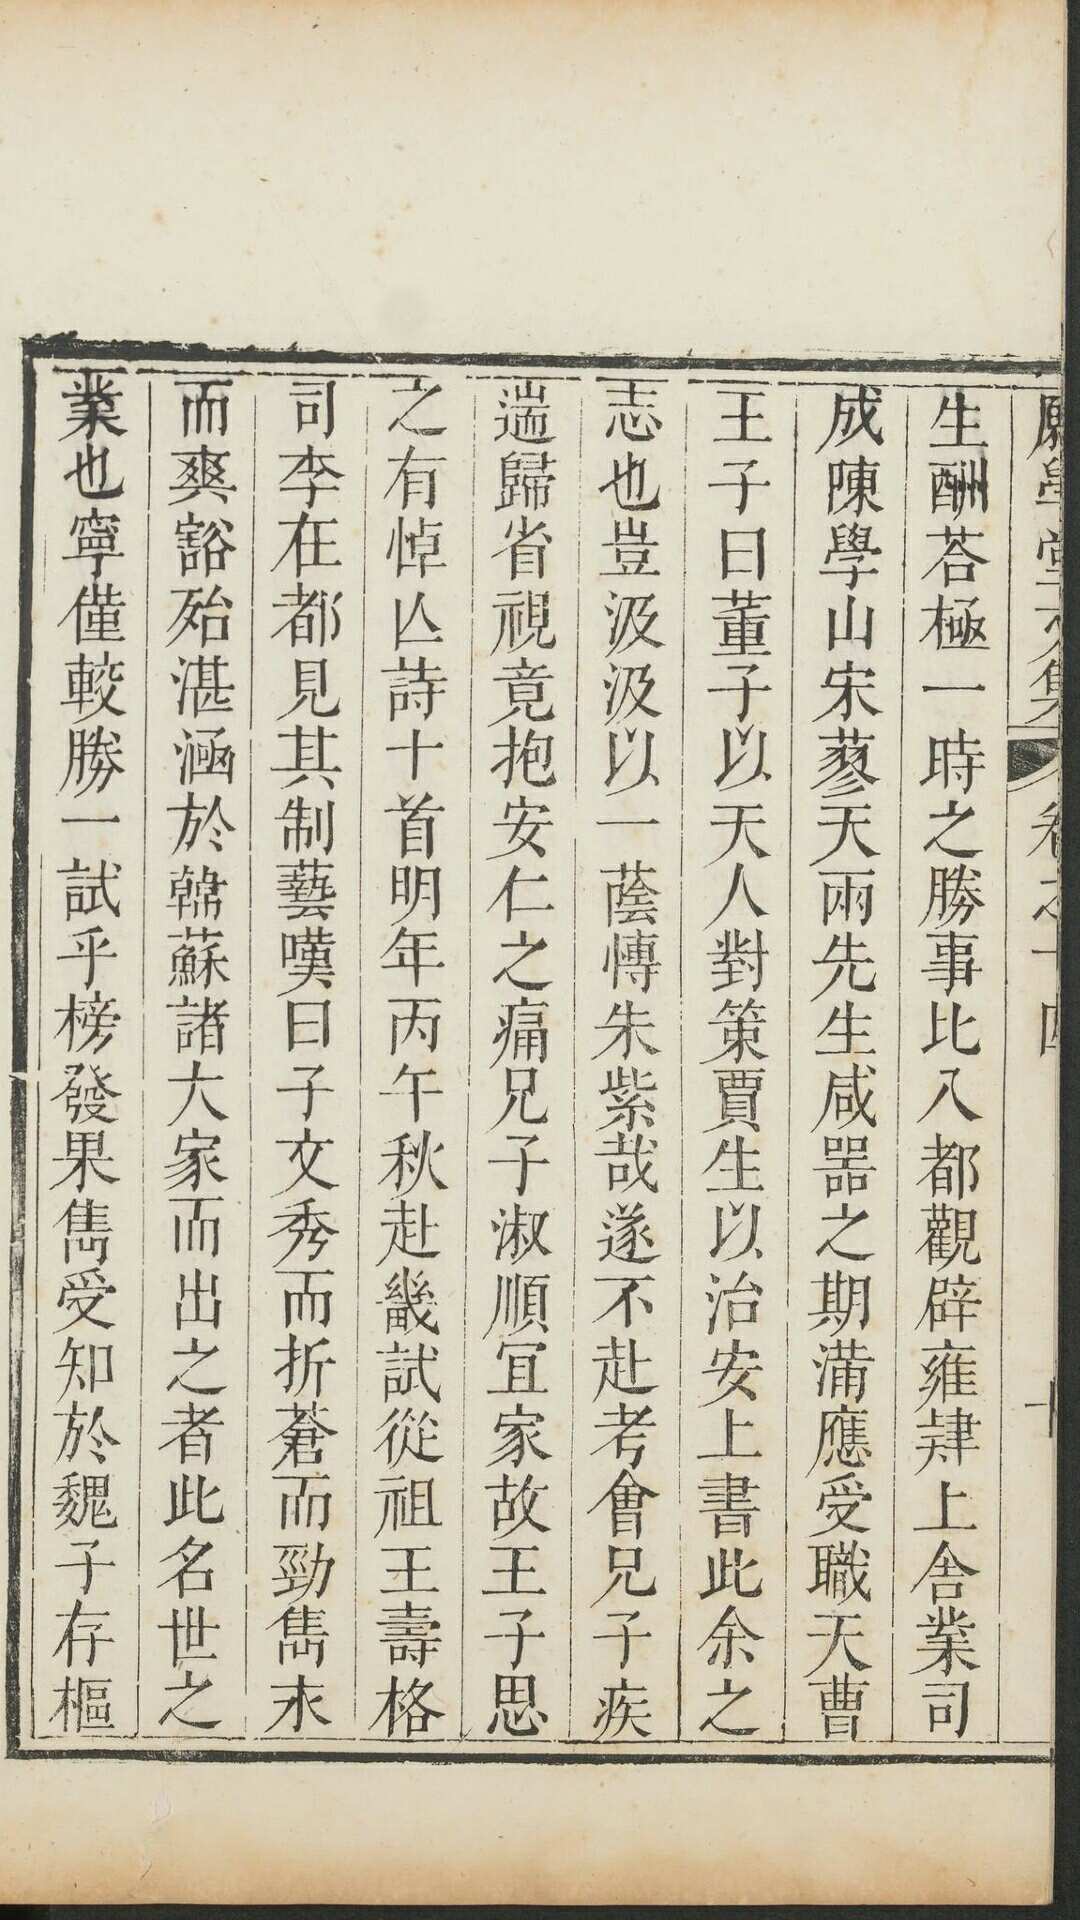 願學堂文集 卷之十四 十
生酬荅極一時之勝事比入都觀辟雍肄上舍業司
成陳學山宋蓼天兩先生咸噐之期滿應受職天曹
王子曰董子以天人對策賈生以治安上書此余之
志也豈汲汲以一蔭博朱紫哉遂不赴考會兄子疾
遄歸省視竟抱安仁之痛兄子淑順宜家故王子思
之有悼亾詩十首明年丙午秋赴畿試從祖王壽格
司李在都見其制藝嘆曰子文秀而折蒼而勁雋永
而爽豁殆湛涵於韓蘇諸大家而出之者此名世之
業也寧僅較勝一試乎榜發果雋受知於魏子存樞